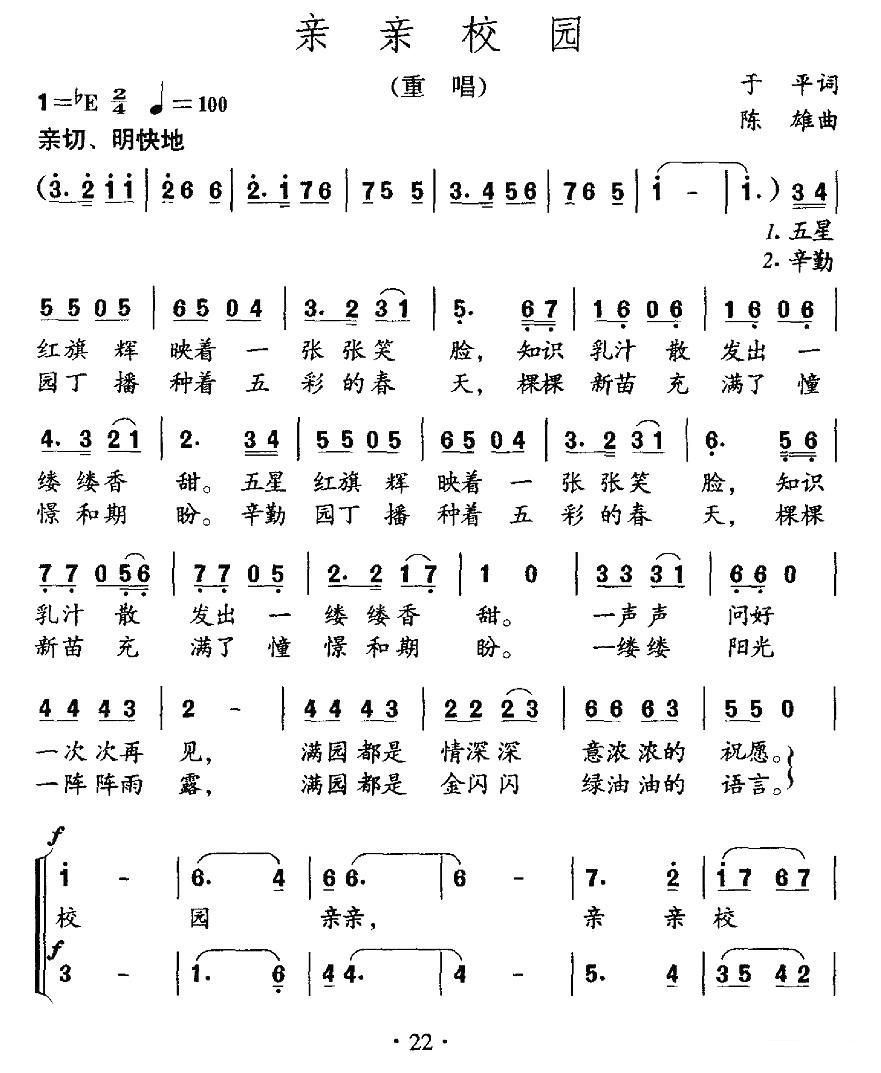 亲亲校园
(重唱)
1=♭E 2/4 ♩=100
于平词
陈雄曲
亲切、明快地
(3. 2 1 1 | 2 6 6 | 2. 1 7 6 | 7 5 5 | 3. 4 5 6 | 7 6 5 | 1 - | 1.) 3 4 |
1. 五星
2. 辛勤
5 5 0 5 | 6 5 0 4 | 3. 2 3 1 | 5. 6 7 | 1 6 0 6 | 1 6 0 6 |
红旗 辉 映着 一 张 张笑 脸, 知识 乳汁 散 发出 一
园丁 播 种着 五 彩 的春 天, 棵棵 新苗 充 满了 憧
4. 3 2 1 | 2. 3 4 | 5 5 0 5 | 6 5 0 4 | 3. 2 3 1 | 6. 5 6 |
缕 缕香 甜。 五星 红旗 辉 映着 一 张 张笑 脸, 知识
憬 和期 盼。 辛勤 园丁 播 种着 五 彩 的春 天, 棵棵
7 7 0 5 6 | 7 7 0 5 | 2. 2 1 7 | 1 0 | 3 3 3 1 | 6 6 0 |
乳汁 散 发出 一 缕 缕香 甜。 一声声 问好
新苗 充 满了 憧 憬 和期 盼。 一缕缕 阳光
4 4 4 3 | 2 - | 4 4 4 3 | 2 2 2 3 | 6 6 6 3 | 5 5 0 |
一次次再 见, 满园都是 情深深 意浓浓的 祝愿。
一阵阵雨 露, 满园都是 金闪闪 绿油油的 语言。
f
1 - | 6. 4 | 6 6. | 6 - | 7. 2 | 1 7 6 7 |
校 园 亲亲, 亲 亲 校
f
3 - | 1. 6 | 4 4. | 4 - | 5. 4 | 3 5 4 2 |
· 22 ·